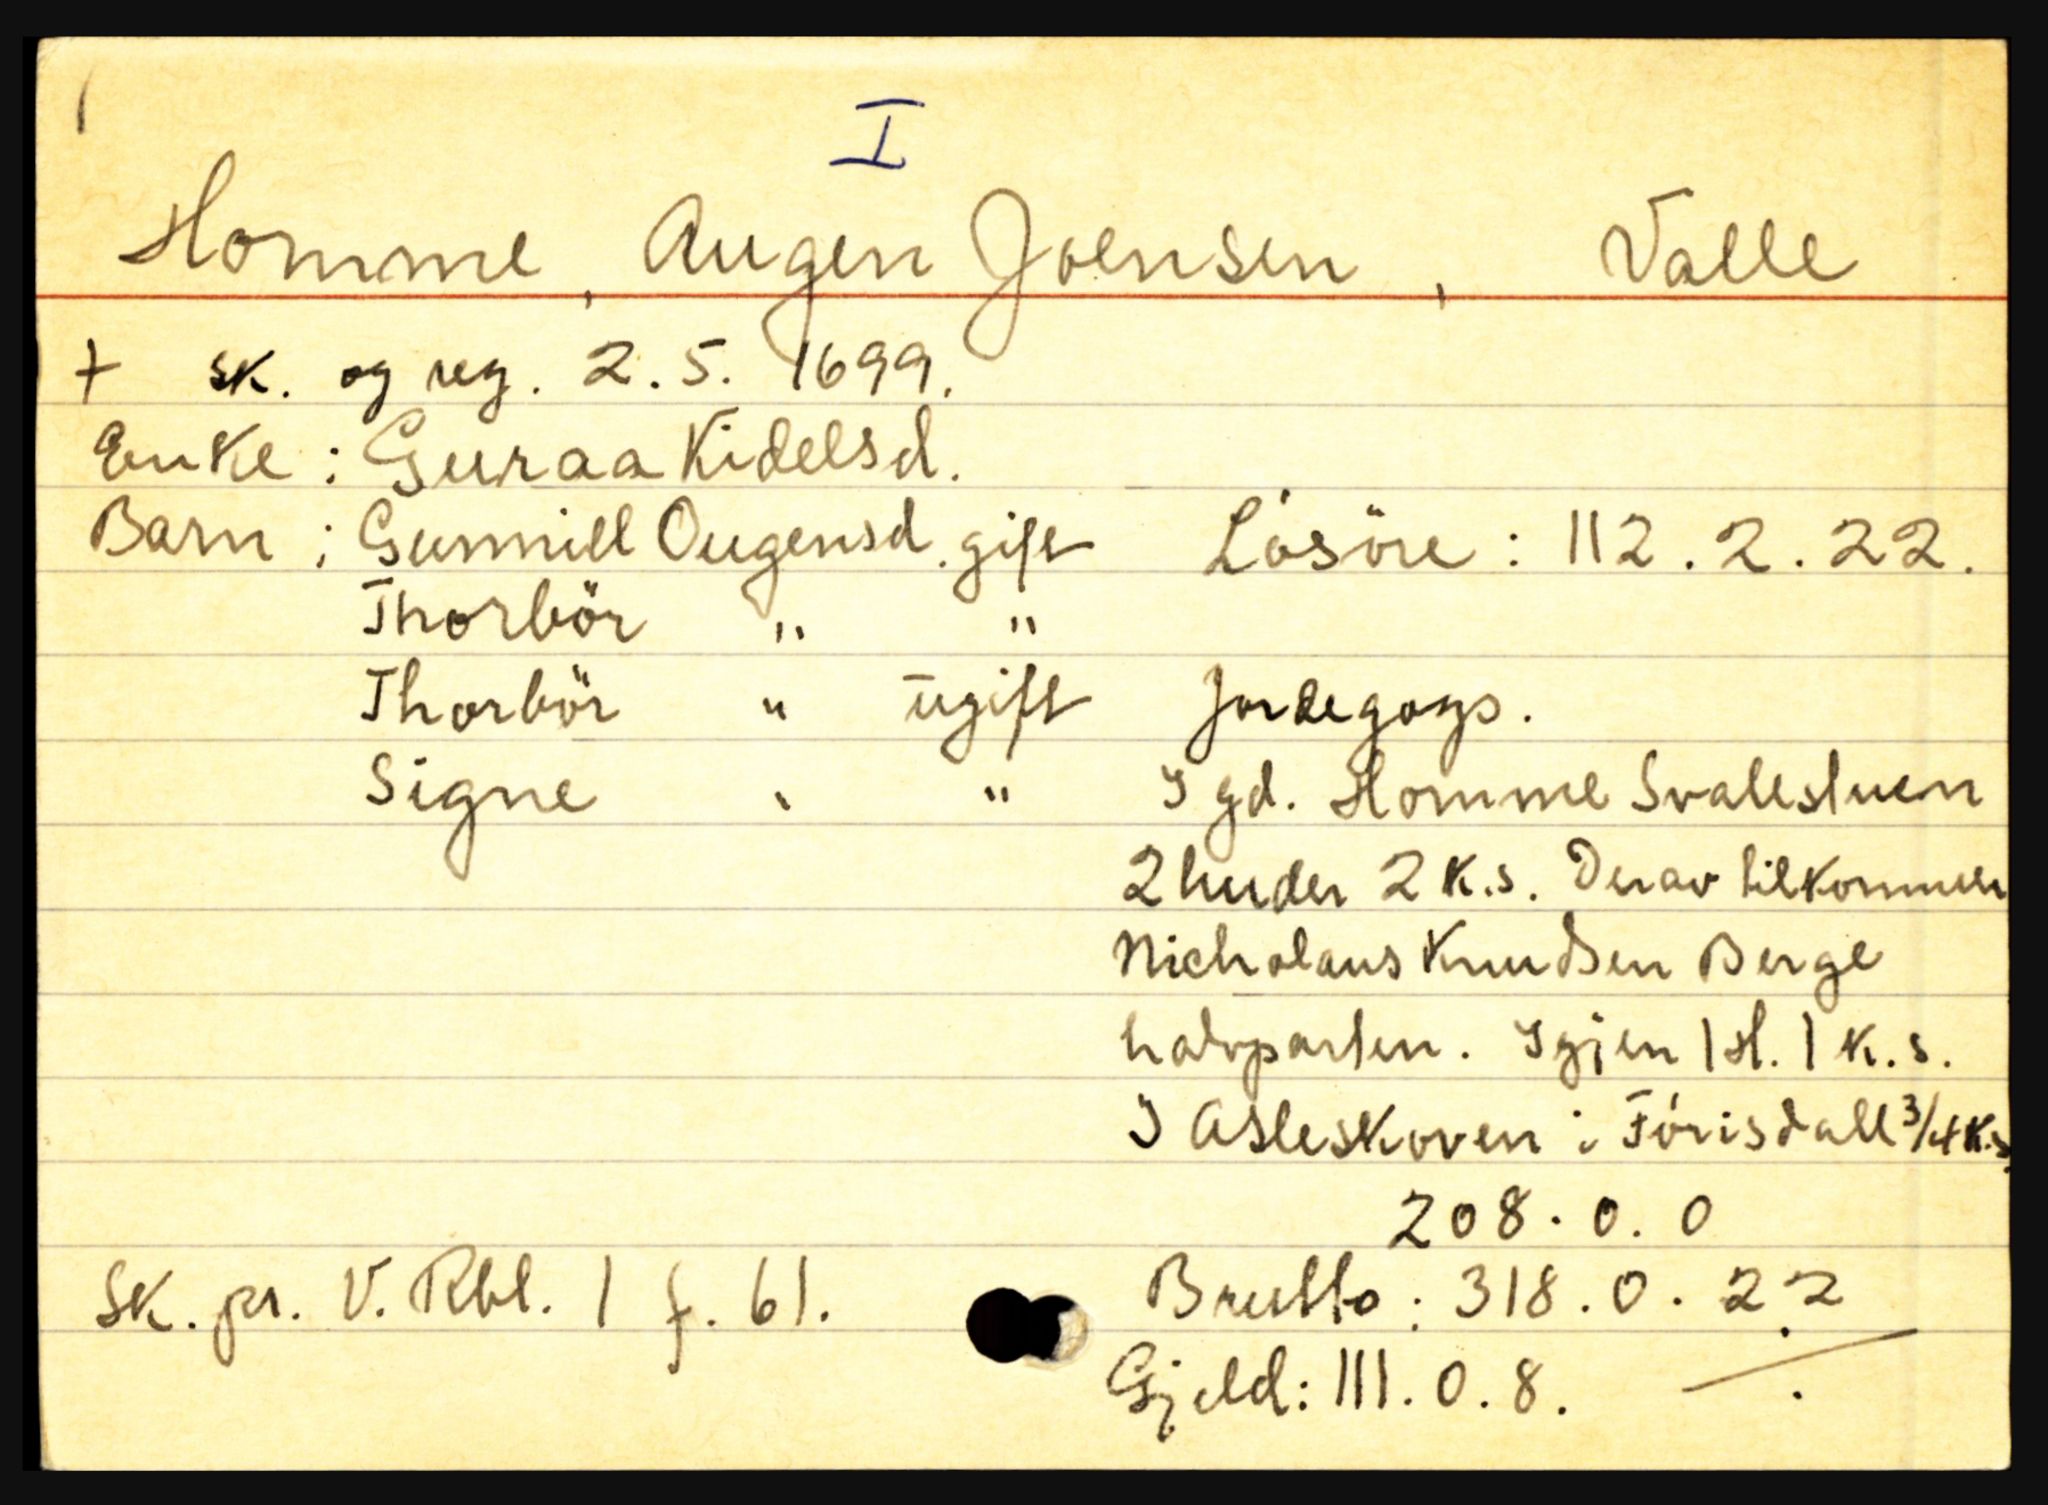 I
Homme, Augen Joensen, Valle
+ sk. og reg. 2.5. 1699.
Enke: Guraa Kidelsd.
Barn: Gunnill Ougensd. gift
Thorbör " "
Thorbör " ugift
Signe " "
Lösöre: 112.2.22.
Jordegogs.
I gd. Homme Svalestuen
2 huder 2 k.s. Derav tilkommer
Nicholaus Knudsen Berge
halvparten. Igjen 1 H. 1 k.s.
I Asleskoven i Fórisdall 3/4 k.s.
208.0.0
Brutto: 318.0.22
Gjeld: 111.0.8. ⁒
Sk. pr. V. Rbl. 1 f. 61.